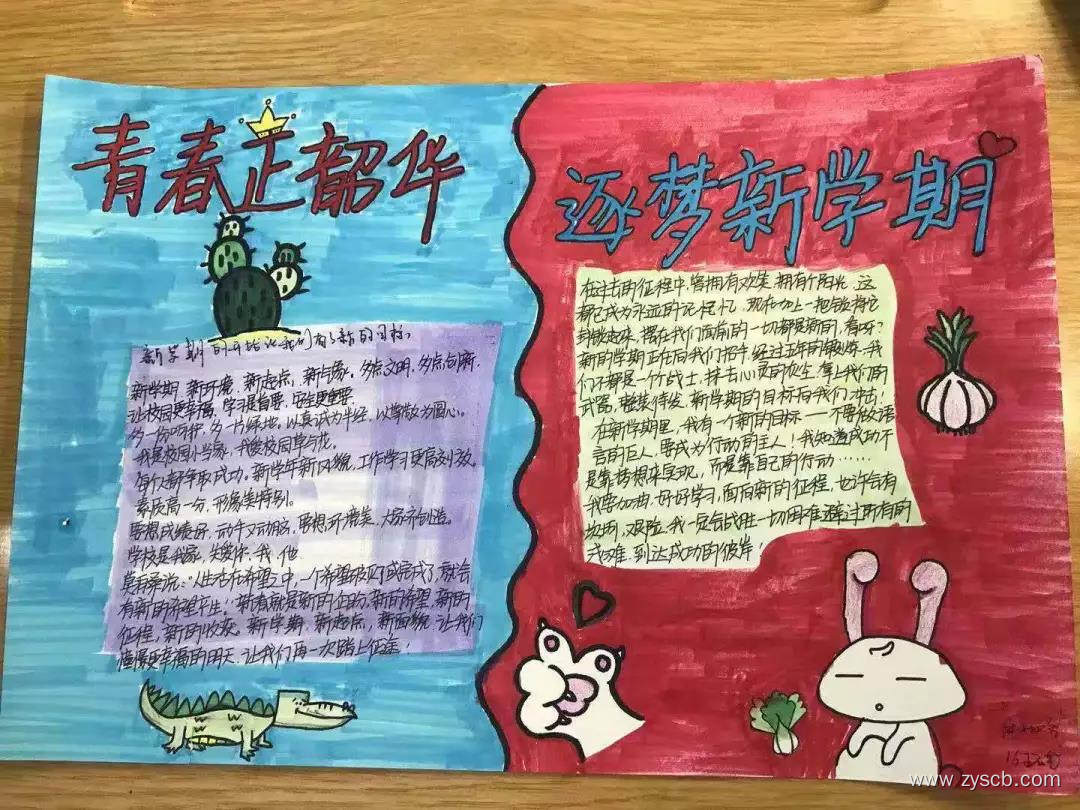 青春正韶华
逐梦新学期
新学期的开始让我们有了新的目标，
新学期，新环境，新起点，新气象，多点文明，多点创新，
让校园更幸福，学习是首要，安全更重要。
多一份呵护，多一片绿地，以真诚为半径，以尊敬为圆心。
我是校园小当家，我爱校园草与花。
每个人都争取成功。新学年新风貌，工作学习更高效。
素质高一分，形象美特别。
要想成绩好，动手又动脑，要想环境美，大家齐创造。
学校是我家，关爱你、我、他
莫泊桑说："人生活在希望之中，一个希望破灭了或完成了，就会
有新的希望产生。"新春就是新的企盼，新的希望，新的
征程，新的收获。新学期，新起点，新面貌，让我们
憧憬更幸福的明天，让我们再一次踏上征途！
在过去的征程中，曾拥有欢笑，拥有个阳光，这
都已成为永远的记忆，现在加上一把锁将它
封锁起来，摆在我们面前的一切都是新的，看好？
新的学期正在向我们招手，经过五年的锻炼，我
们不都是一个战士，抹去心灵的灰尘，拿上我们的
武器，整装待发，新学期的目标向我们冲击！
在新学期里，我有一个新的目标——不要做语
言的巨人，要成为行动的主人！我知道成功不
是靠梦想来实现，而是靠自己的行动……
我要加油，好好学习，面向新的征程，也许会有
坎坷，艰险，我一定会战胜一切困难，穿过所有的
苦难，到达成功的彼岸！
www.zyscb.com